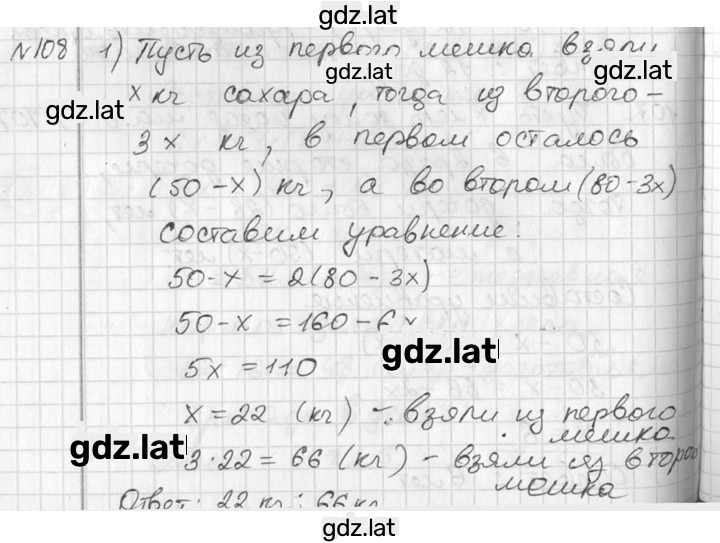 gdz.lat
N108 1) Пусть из первого мешка взяли
gdz.lat
gdz.lat
x кг сахара, тогда из второго -
3x кг, в первом осталось
(50-x) кг, а во втором (80-3x)
составим уравнение:
50-x = 2(80-3x)
50-x = 160-6x
gdz.lat
5x = 110
x = 22 (кг) - взяли из первого
мешка
gdz.lat
3·22 = 66 (кг) - взяли из второго
мешка
Ответ: 22 кг; 66 кг
gdz.lat